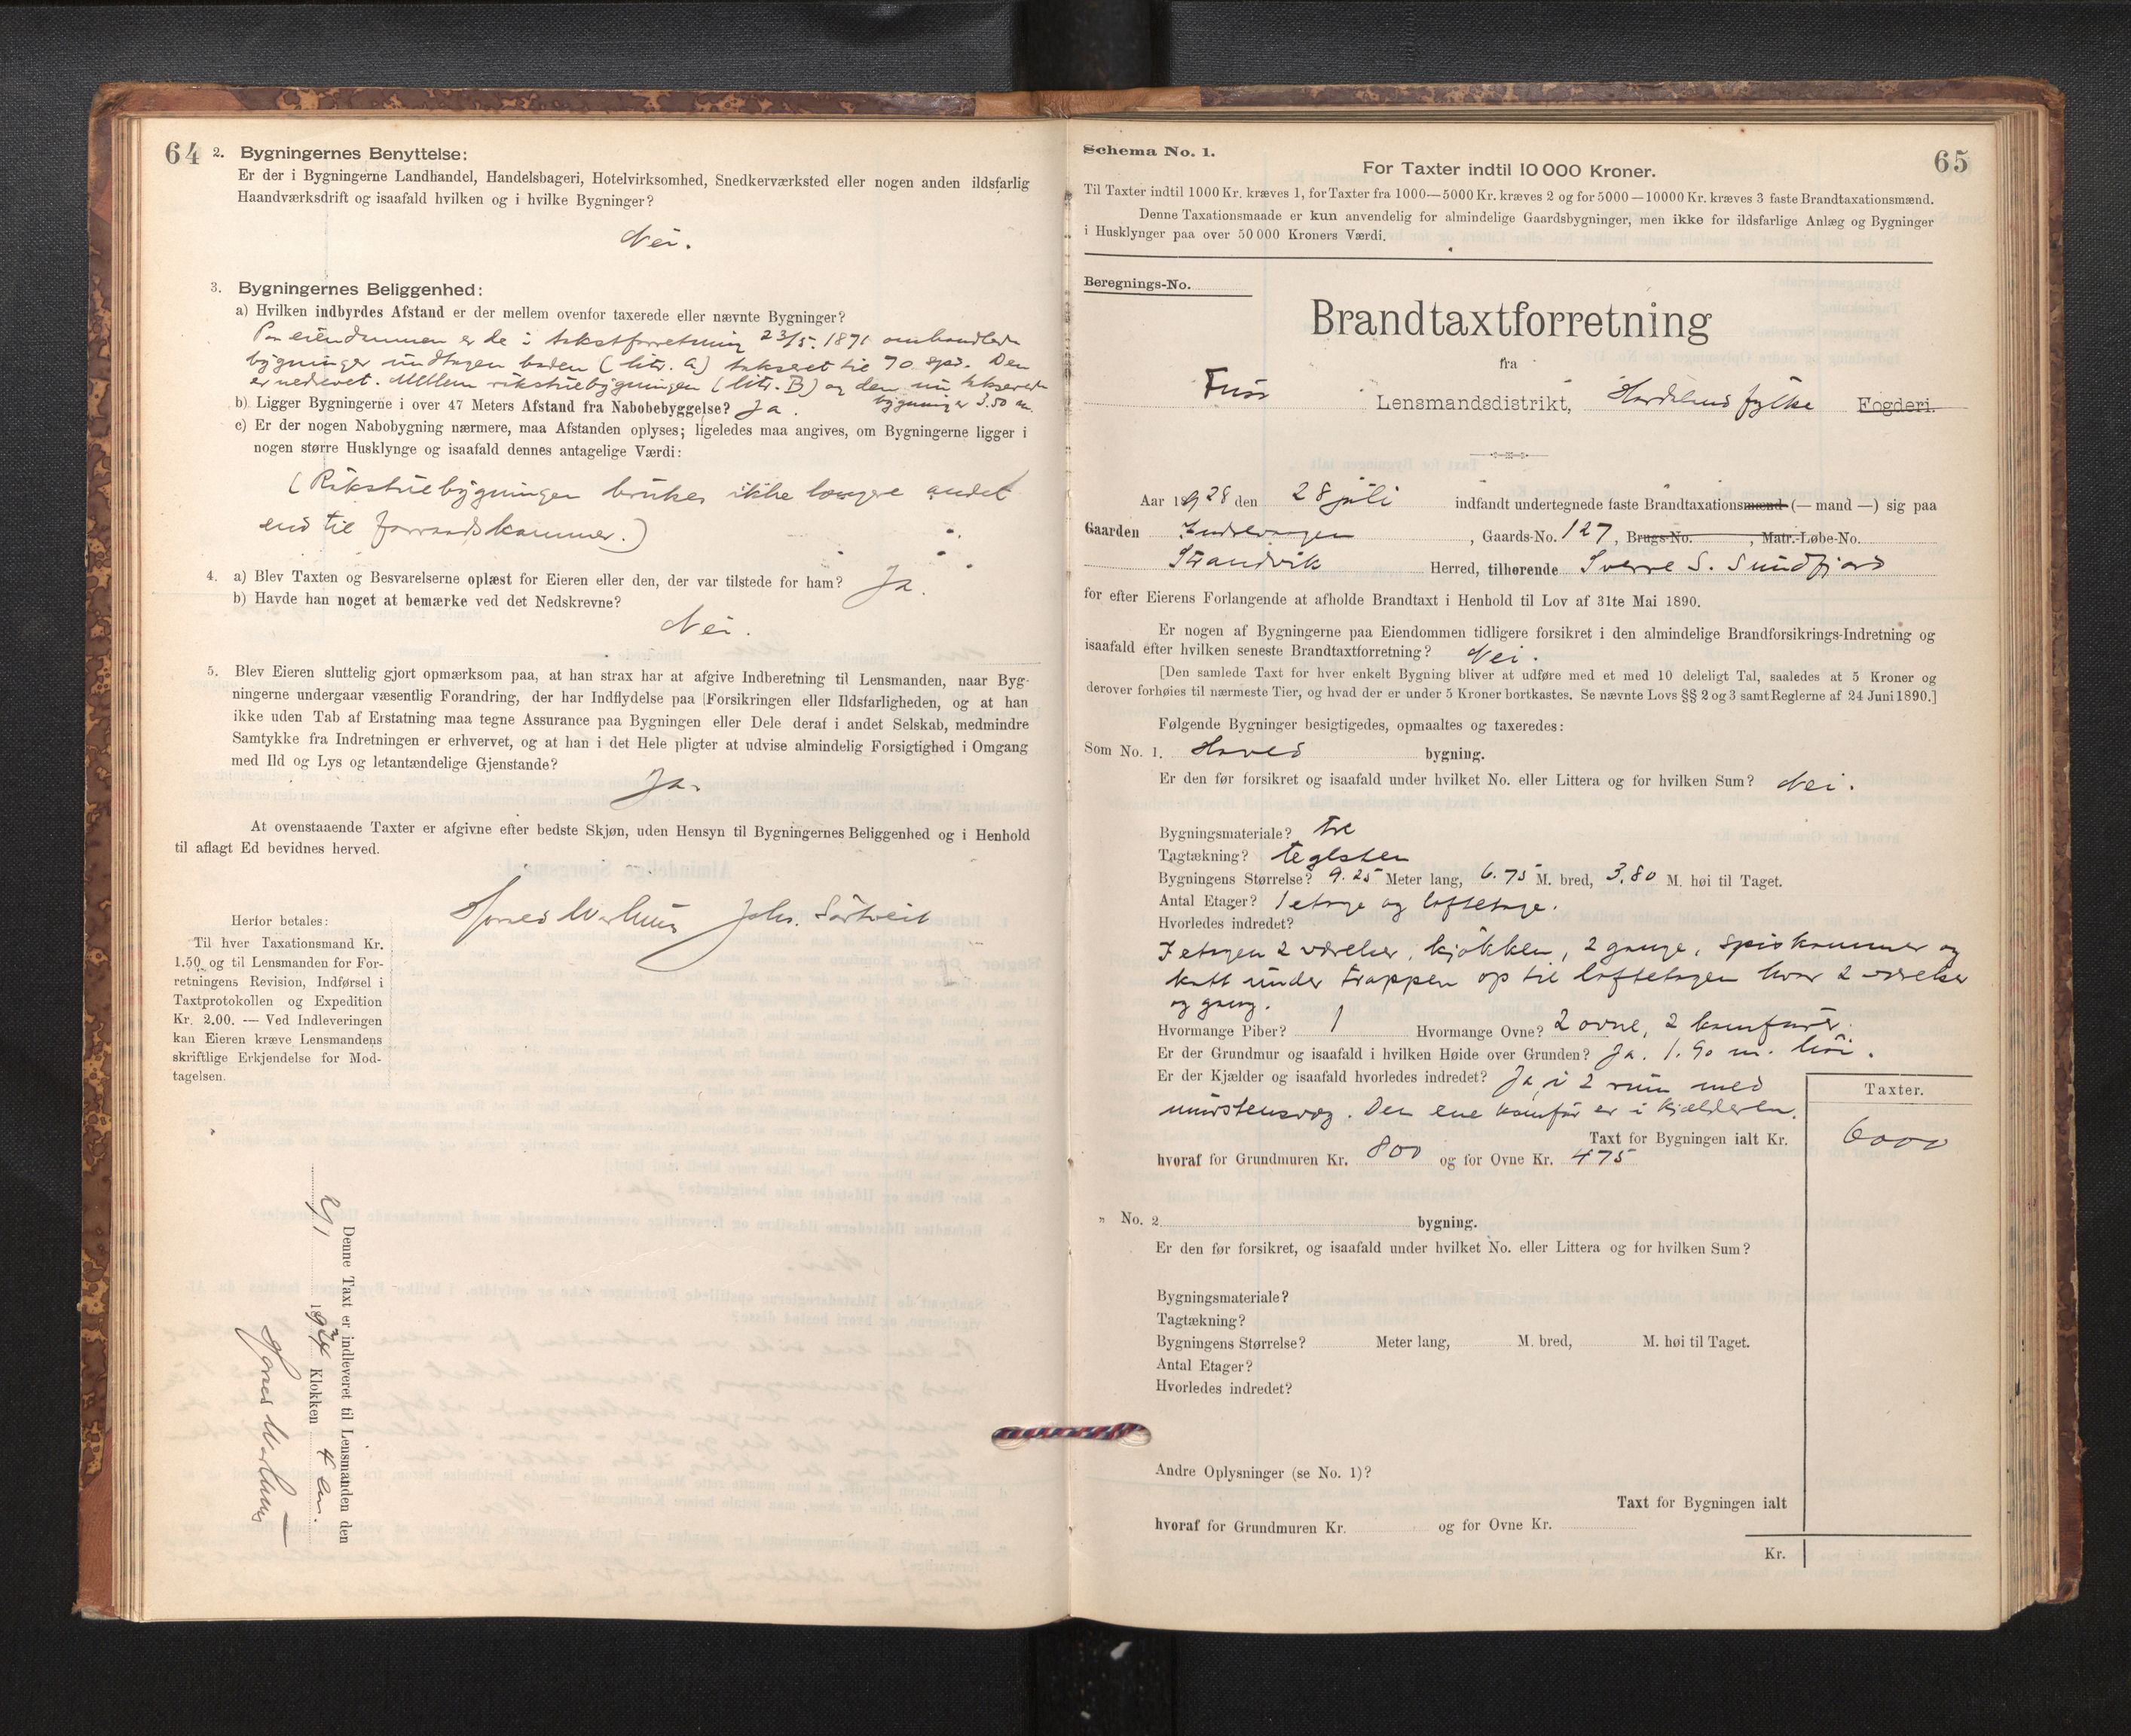 64
2. Bygningernes Benyttelse:
Er der i Bygningerne Landhandel, Handelsbageri, Hotelvirksomhed, Snedkerværksted eller nogen anden ildsfarlig
Haandværksdrift og isaafald hvilken og i hvilke Bygninger?
Nei.
3. Bygningernes Beliggenhed:
a) Hvilken indbyrdes Afstand er der mellem ovenfor taxerede eller nævnte Bygninger?
Paa eiendommen er de i takstforretning 23/5. 1871 omhandlede
bygninger undtagen boden (litr. A) takseret til 70 spd. Den
er nedrevet. Mellem røkstuebygningen (litr. B) og den nu takserede
bygning er 3.50 m.
b) Ligger Bygningerne i over 47 Meters Afstand fra Nabobebyggelse? Ja.
c) Er der nogen Nabobygning nærmere, maa Afstanden oplyses; ligeledes maa angives, om Bygningerne ligger i
nogen større Husklynge og isaafald dennes antagelige Værdi:
(Røkstuebygningen brukes ikke længere andet
end til forraadskammer.)
4. a) Blev Taxten og Besvarelserne oplæst for Eieren eller den, der var tilstede for ham? Ja.
b) Havde han noget at bemærke ved det Nedskrevne?
Nei.
5. Blev Eieren sluttelig gjort opmærksom paa, at han strax har at afgive Indberetning til Lensmanden, naar Byg-
ningerne undergaar væsentlig Forandring, der har Indflydelse paa Forsikringen eller Ildsfarligheden, og at han
ikke uden Tab af Erstatning maa tegne Assurance paa Bygningen eller Dele deraf i andet Selskab, medmindre
Samtykke fra Indretningen er erhvervet, og at han i det Hele pligter at udvise almindelig Forsigtighed i Omgang
med Ild og Lys og letantændelige Gjenstande?
Ja.
At ovenstaaende Taxter er afgivne efter bedste Skjøn, uden Hensyn til Bygningernes Beliggenhed og i Henhold
til aflagt Ed bevidnes herved.
Joh.
Herfor betales:
Til hver Taxationsmand Kr.
1.50 og til Lensmanden for For-
retningens Revision, Indførsel i
Taxtprotokollen og Expedition
Kr. 2.00. — Ved Indleveringen
kan Eieren kræve Lensmandens
skriftlige Erkjendelse for Mod-
tagelsen.
Denne Taxt er indleveret til Lensmanden den
Klokken 4 em.
65
Schema No. 1.
For Taxter indtil 10 000 Kroner.
Til Taxter indtil 1000 Kr. kræves 1, for Taxter fra 1000—5000 Kr. kræves 2 og for 5000—10000 Kr. kræves 3 faste Brandtaxationsmænd.
Denne Taxationsmaade er kun anvendelig for almindelige Gaardsbygninger, men ikke for ildsfarlige Anlæg og Bygninger
i Husklynger paa over 50 000 Kroners Værdi.
Beregnings-No.
Brandtaxtforretning
fra
Fusa Lensmandsdistrikt, Hordaland fylke Fogderi.
Aar 1928 den 28 juli indfandt undertegnede faste Brandtaxationsmænd (— mand —) sig paa
Gaarden , Gaards-No. 127, Brugs-No. , Matr.-Løbe-No.
Strandvik Herred, tilhørende Sverre S. Sundfjord
for efter Eierens Forlangende at afholde Brandtaxt i Henhold til Lov af 31te Mai 1890.
Er nogen af Bygningerne paa Eiendommen tidligere forsikret i den almindelige Brandforsikrings-Indretning og
isaafald efter hvilken seneste Brandtaxtforretning? Nei.
[Den samlede Taxt for hver enkelt Bygning bliver at udføre med et med 10 deleligt Tal, saaledes at 5 Kroner og
derover forhøies til nærmeste Tier, og hvad der er under 5 Kroner bortkastes. Se nævnte Lovs §§ 2 og 3 samt Reglerne af 24 Juni 1890.]
Følgende Bygninger besigtigedes, opmaaltes og taxeredes:
Som No. 1. Hoved bygning.
Er den før forsikret og isaafald under hvilket No. eller Littera og for hvilken Sum? Nei.
Bygningsmateriale? tre
Tagtækning? teglsten
Bygningens Størrelse? 9.25 Meter lang, 6.75 M. bred, 3.80 M. høi til Taget.
Antal Etager? 1 etage og loftetage.
Hvorledes indredet?
I etagen 2 værelser, kjøkken, 2 gange, spiskammer og
kott under trappen op til loftetagen hvor 2 værelser
og gang.
Hvormange Piber? 1 Hvormange Ovne? 2 ovne, 2 komfurer.
Er der Grundmur og isaafald i hvilken Høide over Grunden? Ja. 1.90 m. høi.
Er der Kjælder og isaafald hvorledes indredet? Ja, i 2 rum med
murstensvæg. Den ene komfur er i kjælderen.
Taxter.
Taxt for Bygningen ialt Kr. 6000
hvoraf for Grundmuren Kr. 800 og for Ovne Kr. 475
" No. 2 bygning.
Er den før forsikret, og isaafald under hvilket No. eller Littera og for hvilken Sum?
Bygningsmateriale?
Tagtækning?
Bygningens Størrelse? Meter lang, M. bred, M. høi til Taget.
Antal Etager?
Hvorledes indredet?
Andre Oplysninger (se No. 1)?
Taxt for Bygningen ialt
hvoraf for Grundmuren Kr. og for Ovne Kr.
Kr.